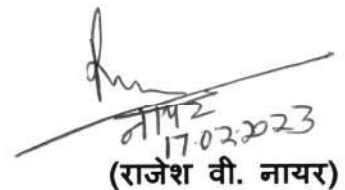 नायर
17.02.2023
(राजेश वी. नायर)